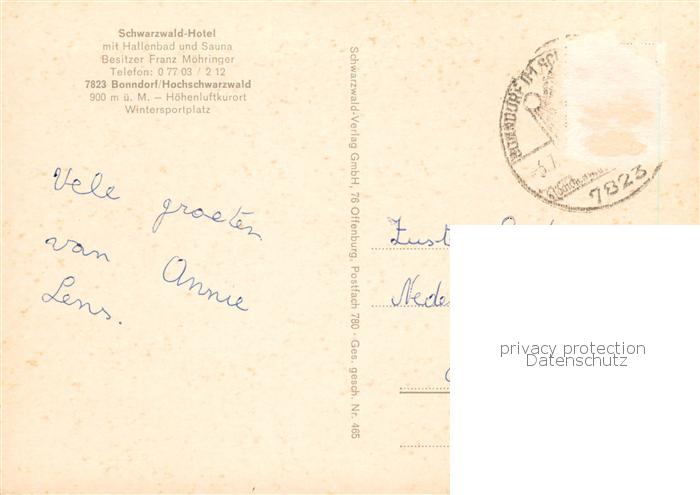 Schwarzwald-Hotel
mit Hallenbad und Sauna
Besitzer Franz Möhringer
Telefon: 0 77 03 / 2 12
7823 Bonndorf/Hochschwarzwald
900 m ü. M. – Höhenluftkurort
Wintersportplatz
Vele groeten
van Annie
Lens.
Schwarzwald-Verlag GmbH, 76 Offenburg, Postfach 780 · Ges. gesch. Nr. 465
BONNDORF IM SC
7823
Zust
Nede
privacy protection
Datenschutz